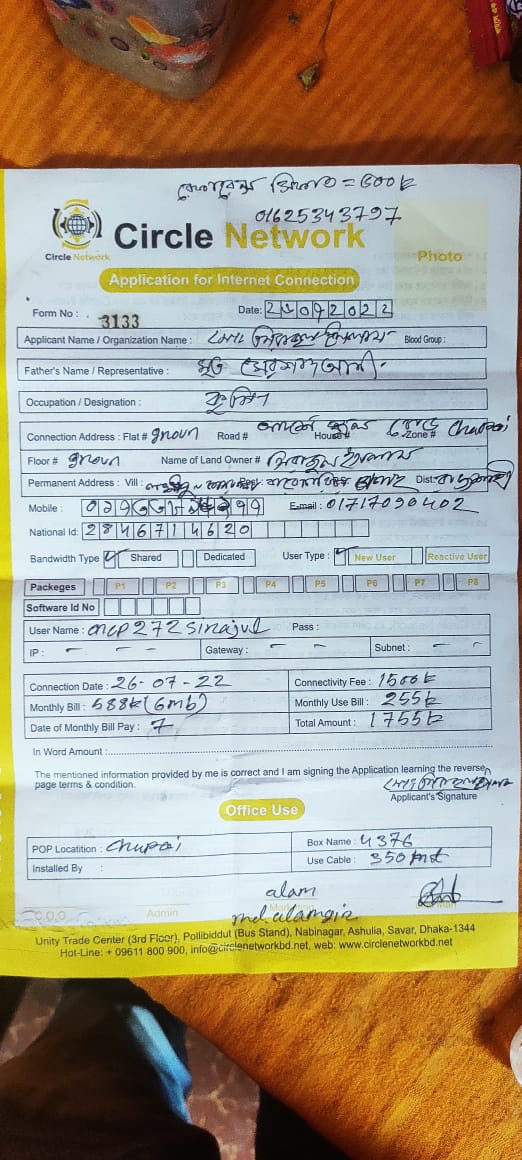 = ৫০০৳
01625343797
Circle Network
Circle Network
Photo
Application for Internet Connection
Form No : 3133
Date: 072022
Applicant Name / Organization Name : মোঃ সিরাজুল ইসলাম Blood Group :
Father's Name / Representative : মৃত আলী
Occupation / Designation :
Connection Address : Flat # groun Road # House # Zone # Chupai
Floor # groun Name of Land Owner # সিরাজুল ইসলাম
Permanent Address : Vill : Dist:
Mobile : E-mail : 01717090402
National Id: 2846714620
Bandwidth Type Shared Dedicated User Type : New User Reactive User
Packeges P1 P2 P3 P4 P5 P6 P7 P8
Software Id No
User Name : mcp272sirajul Pass :
IP : - - - Gateway : - - Subnet : - -
Connection Date : 26-07-22 Connectivity Fee : 1500৳
Monthly Bill : 588৳ (6mb) Monthly Use Bill : 255৳
Date of Monthly Bill Pay : 7 Total Amount : 1755৳
In Word Amount :
The mentioned information provided by me is correct and I am signing the Application learning the reverse
page terms & condition.
মোঃ সিরাজুল ইসলাম
Applicant's Signature
Office Use
POP Locatition : Chupai Box Name : 4376
Installed By : Use Cable : 350
alam
C.O.O Admin md. alamgir
Unity Trade Center (3rd Floor), Pollibiddut (Bus Stand), Nabinagar, Ashulia, Savar, Dhaka-1344
Hot-Line: + 09611 800 900, info@circlenetworkbd.net, web: www.circlenetworkbd.net